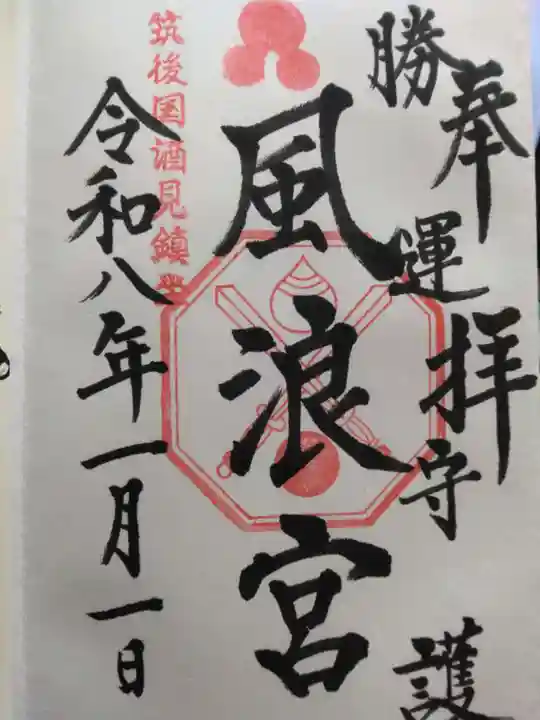 奉拝
勝運守護
風浪宮
筑後国酒見鎮
令和八年一月一日